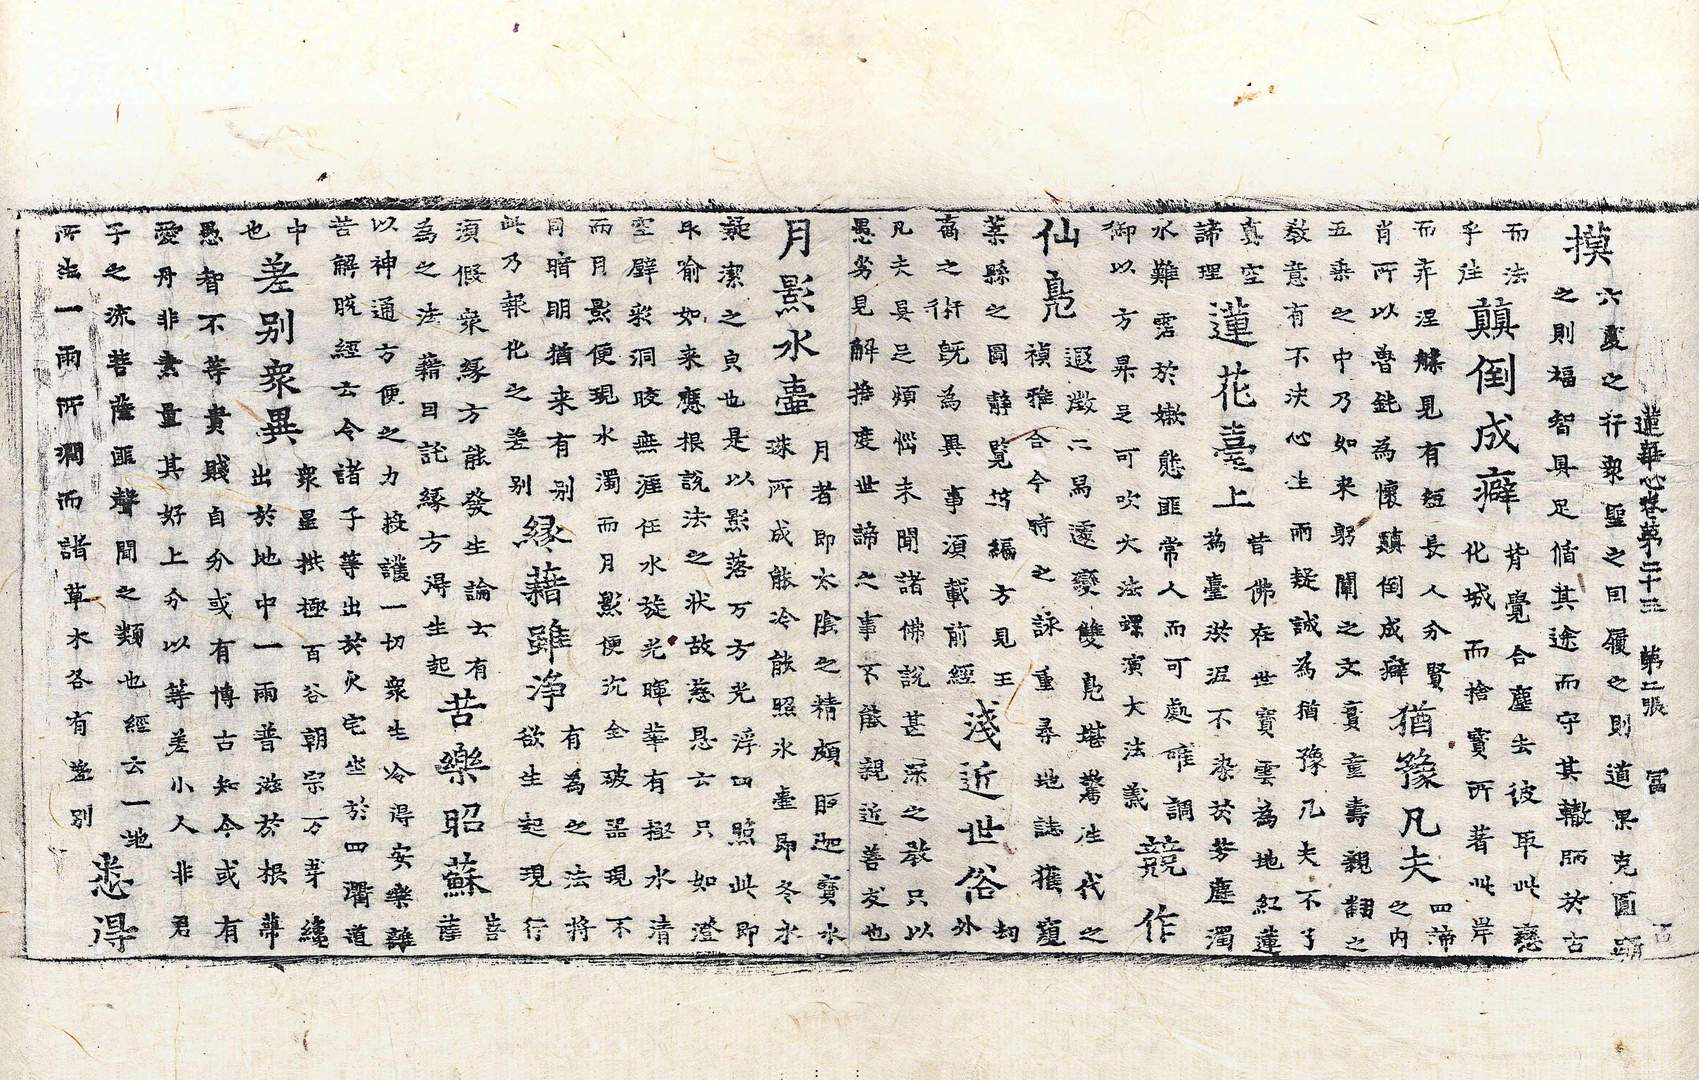 蓮華心卷第二十三 第二張 冨
摸
六度之行衆聖之因履之則道果克圓
之則福智具足循其途而守其轍師於古
而法
乎往
顚倒成癖
背覺合塵去彼取此戀
化城而捨寶所著此岸
而弃涅槃見有短長人分賢
肖所以魯鈍為懷顚倒成癖
猶豫凡夫
四諦
之内
五乘之中乃如来躬闡之文實童壽親翻之
教意有不決心生兩疑誠為猶豫凡夫不了
真空
諦理
蓮花臺上
昔佛在世寳雲為地紅蓮
為臺淤泥不染於芳塵濁
水難霑於嫩態匪常人而可處唯調
御以方昇足可吹大法螺演大法義
競作
仙鳧
遐徵二舄還變雙鳧堪驚往代之
禎雅合今時之詠重尋地誌獲窺
葉縣之圖静覽編方見王
喬之術旣為異事須載前經
淺近世俗
劫
外
凡夫具足煩惱未聞諸佛說甚深之教只以
愚劣見解推度世諦之事不能親近善友也
月影水壷
月者即太陰之精頗胝迦寳水
珠所成能冷能照氷壷即冬氷
凝潔之貞也是以影落万方光浮四照此即
取喻如来應根說法之狀故慈恩云只如澄
空璧彩洞晈無涯任水旋光暉華有極水清
而月影便現水濁而月影便沉全破器現不
月暗明猶来有别
此乃報化之差别
緣藉雖淨
有為之法將
欲生起現行
須假衆緣方能發生論云有
為之法藉因託緣方得生起
苦樂昭蘇
菩
薩
以神通方便之力拔護一切衆生令得安樂離
苦解脫經云令諸子等出於火宅出於四衢道
中
也
差别衆異
衆星拱極百谷朝宗万芽纔
出於地中一雨普滋於根蔕
愚智不等貴賤自分或有博古知今或有
愛丹非素量其好上分以等差小人非君
子之流菩薩匪聲聞之類也經云一地
所生一雨所潤而諸草木各有差别
悉得